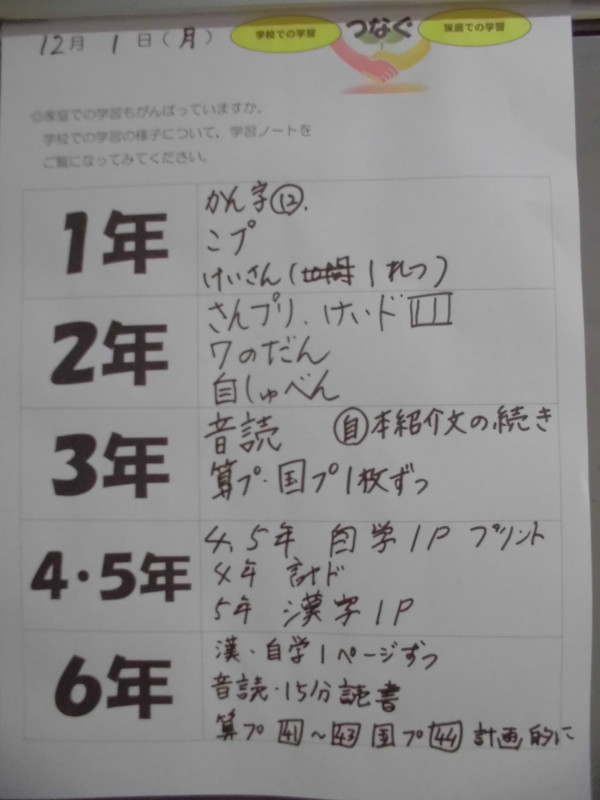 12月 1日(月)
学校での学習 つなぐ 家庭での学習
◎家庭での学習もがんばっていますか。
学校での学習の様子について、学習ノートを
ご覧になってみてください。
1年
かん字⑫.
こプ
けいさん( 1れつ)
2年
さんプリ、けいド
ワのだん
自しゅべん
3年
音読 ㊐本紹介文の続き
算プ・国プ1枚ずつ
4・5年
4、5年 自学1P プリント
4年 計ド
5年 漢字1P
6年
漢・自学1ページずつ
音読・15分読書
算プ 41~43 国プ 44 計画的に